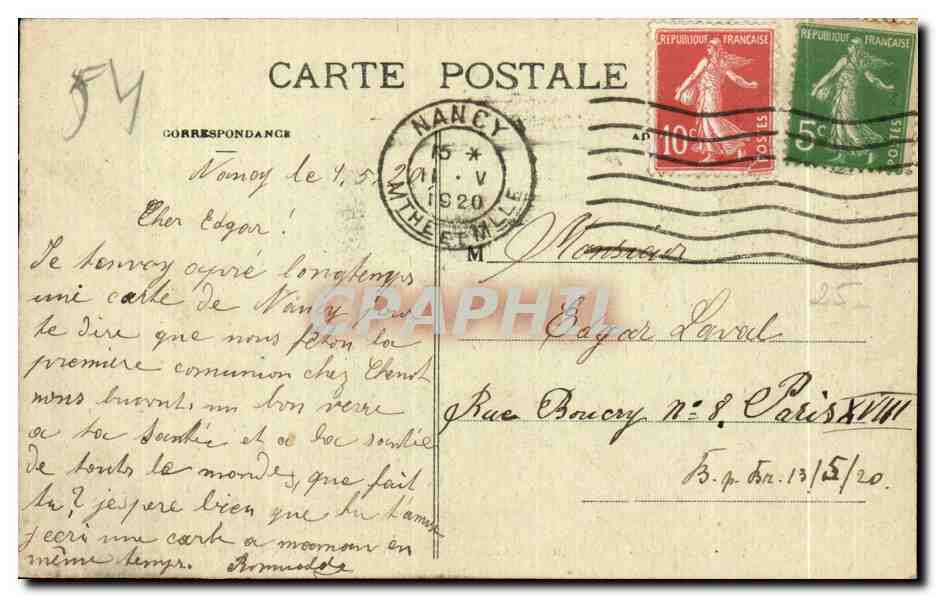 54
CARTE POSTALE
CORRESPONDANCE
Nancy le 1.5.20
Cher Edgar!
Je tanvoy apré longtemps
une carte de Nancy pour
te dire que nous féton la
première comunion chez Chenot
nous buvont un bon verre
a ta santée et a la santée
de touts le monde, que fait
tu? j'espere bien que tu t'amuse
j'ecri une carte a maman en
même temps. Romualde
NANCY
15 *
11 · V
1920
MTHE ET MLLE
REPUBLIQUE FRANÇAISE
10c
POSTES
REPUBLIQUE FRANÇAISE
5c
POSTES
M Monsieur
25
Edgar Laval
Rue Boucry n=8, Paris XVIII
B.p. Br. 13/5/20.
CPAPHIL